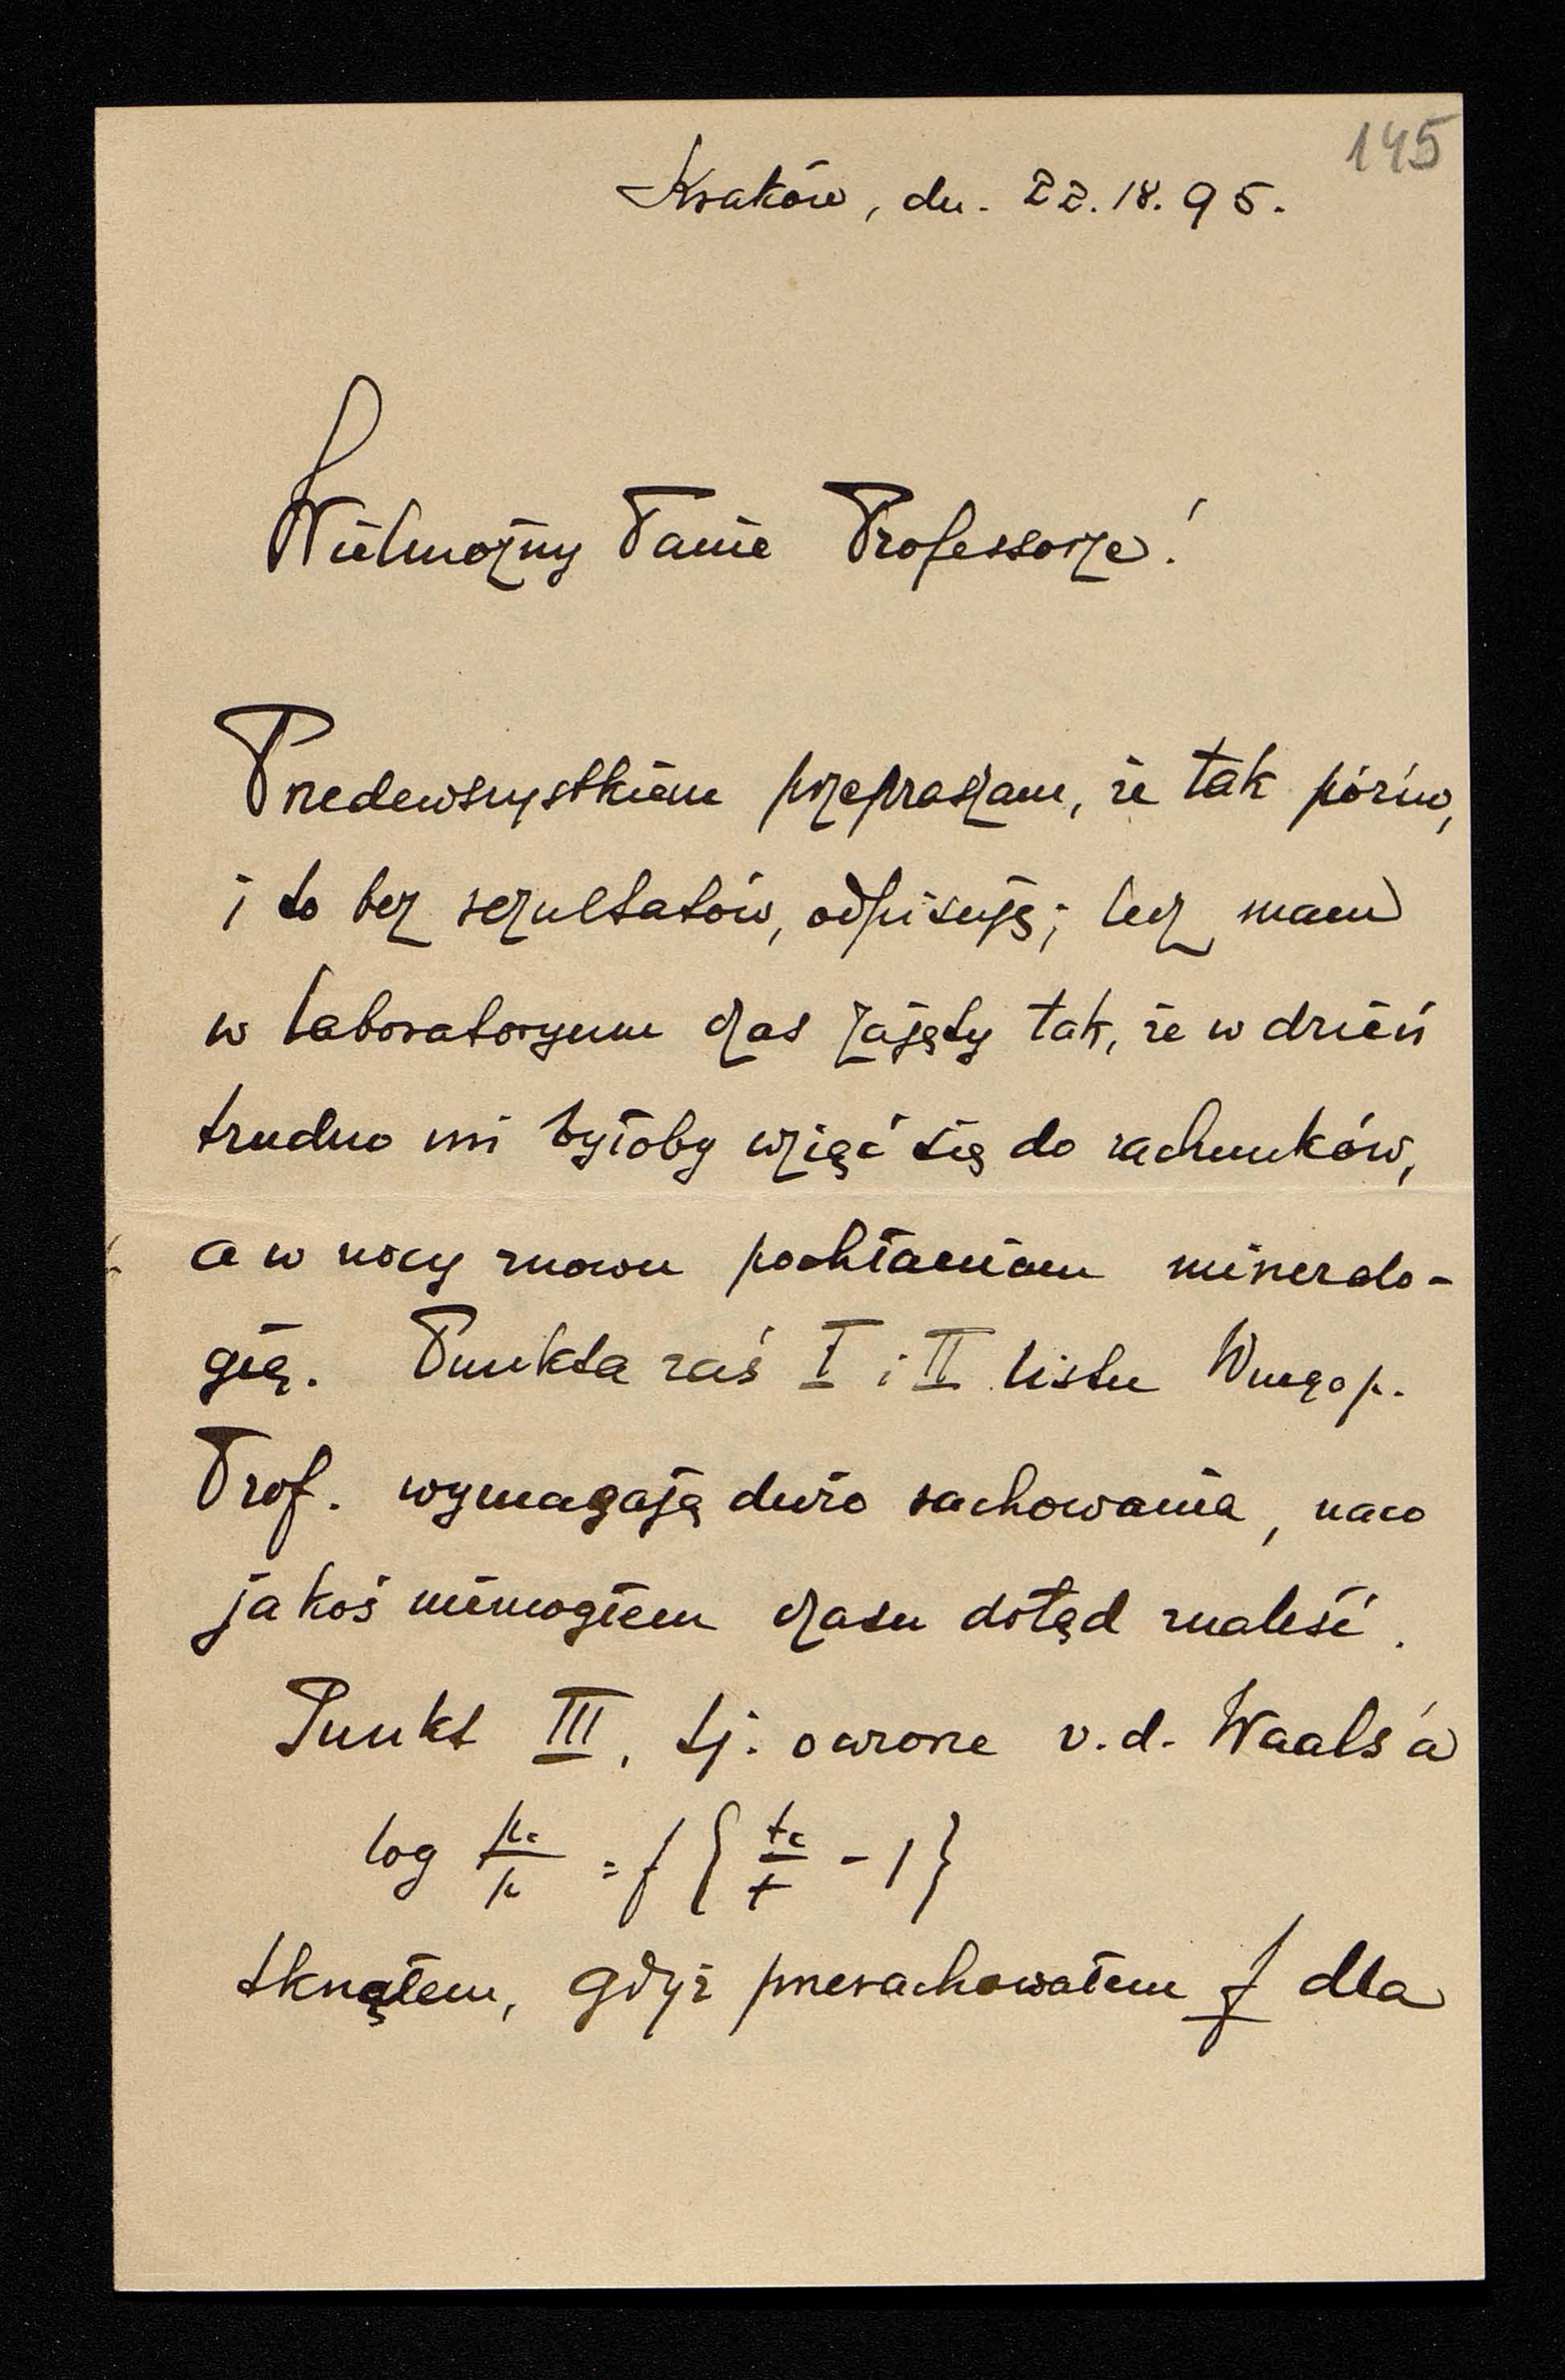 145
Kraków, dn. 22.18.95.
Wielmożny Panie Professorze!
Przedewszystkiem przepraszam, że tak późno,
i to bez rezultatów, odpisuję; lecz mam
w laboratoryum czas zajęty tak, że w dzień
trudno mi byłoby wziąć się do rachunków,
a w nocy znowu pochłaniam mineralo-
gię. Punkta zaś I i II listu Wnego p.
Prof. wymagają dużo rachowania, naco
jakoś niemogłem czasu dotąd znaleść.
Punkt III, tj. owzorze v.d. Waals'a
log pc/p = f { tc/t - 1 }
tknąłem, gdyż przerachowałem f dla